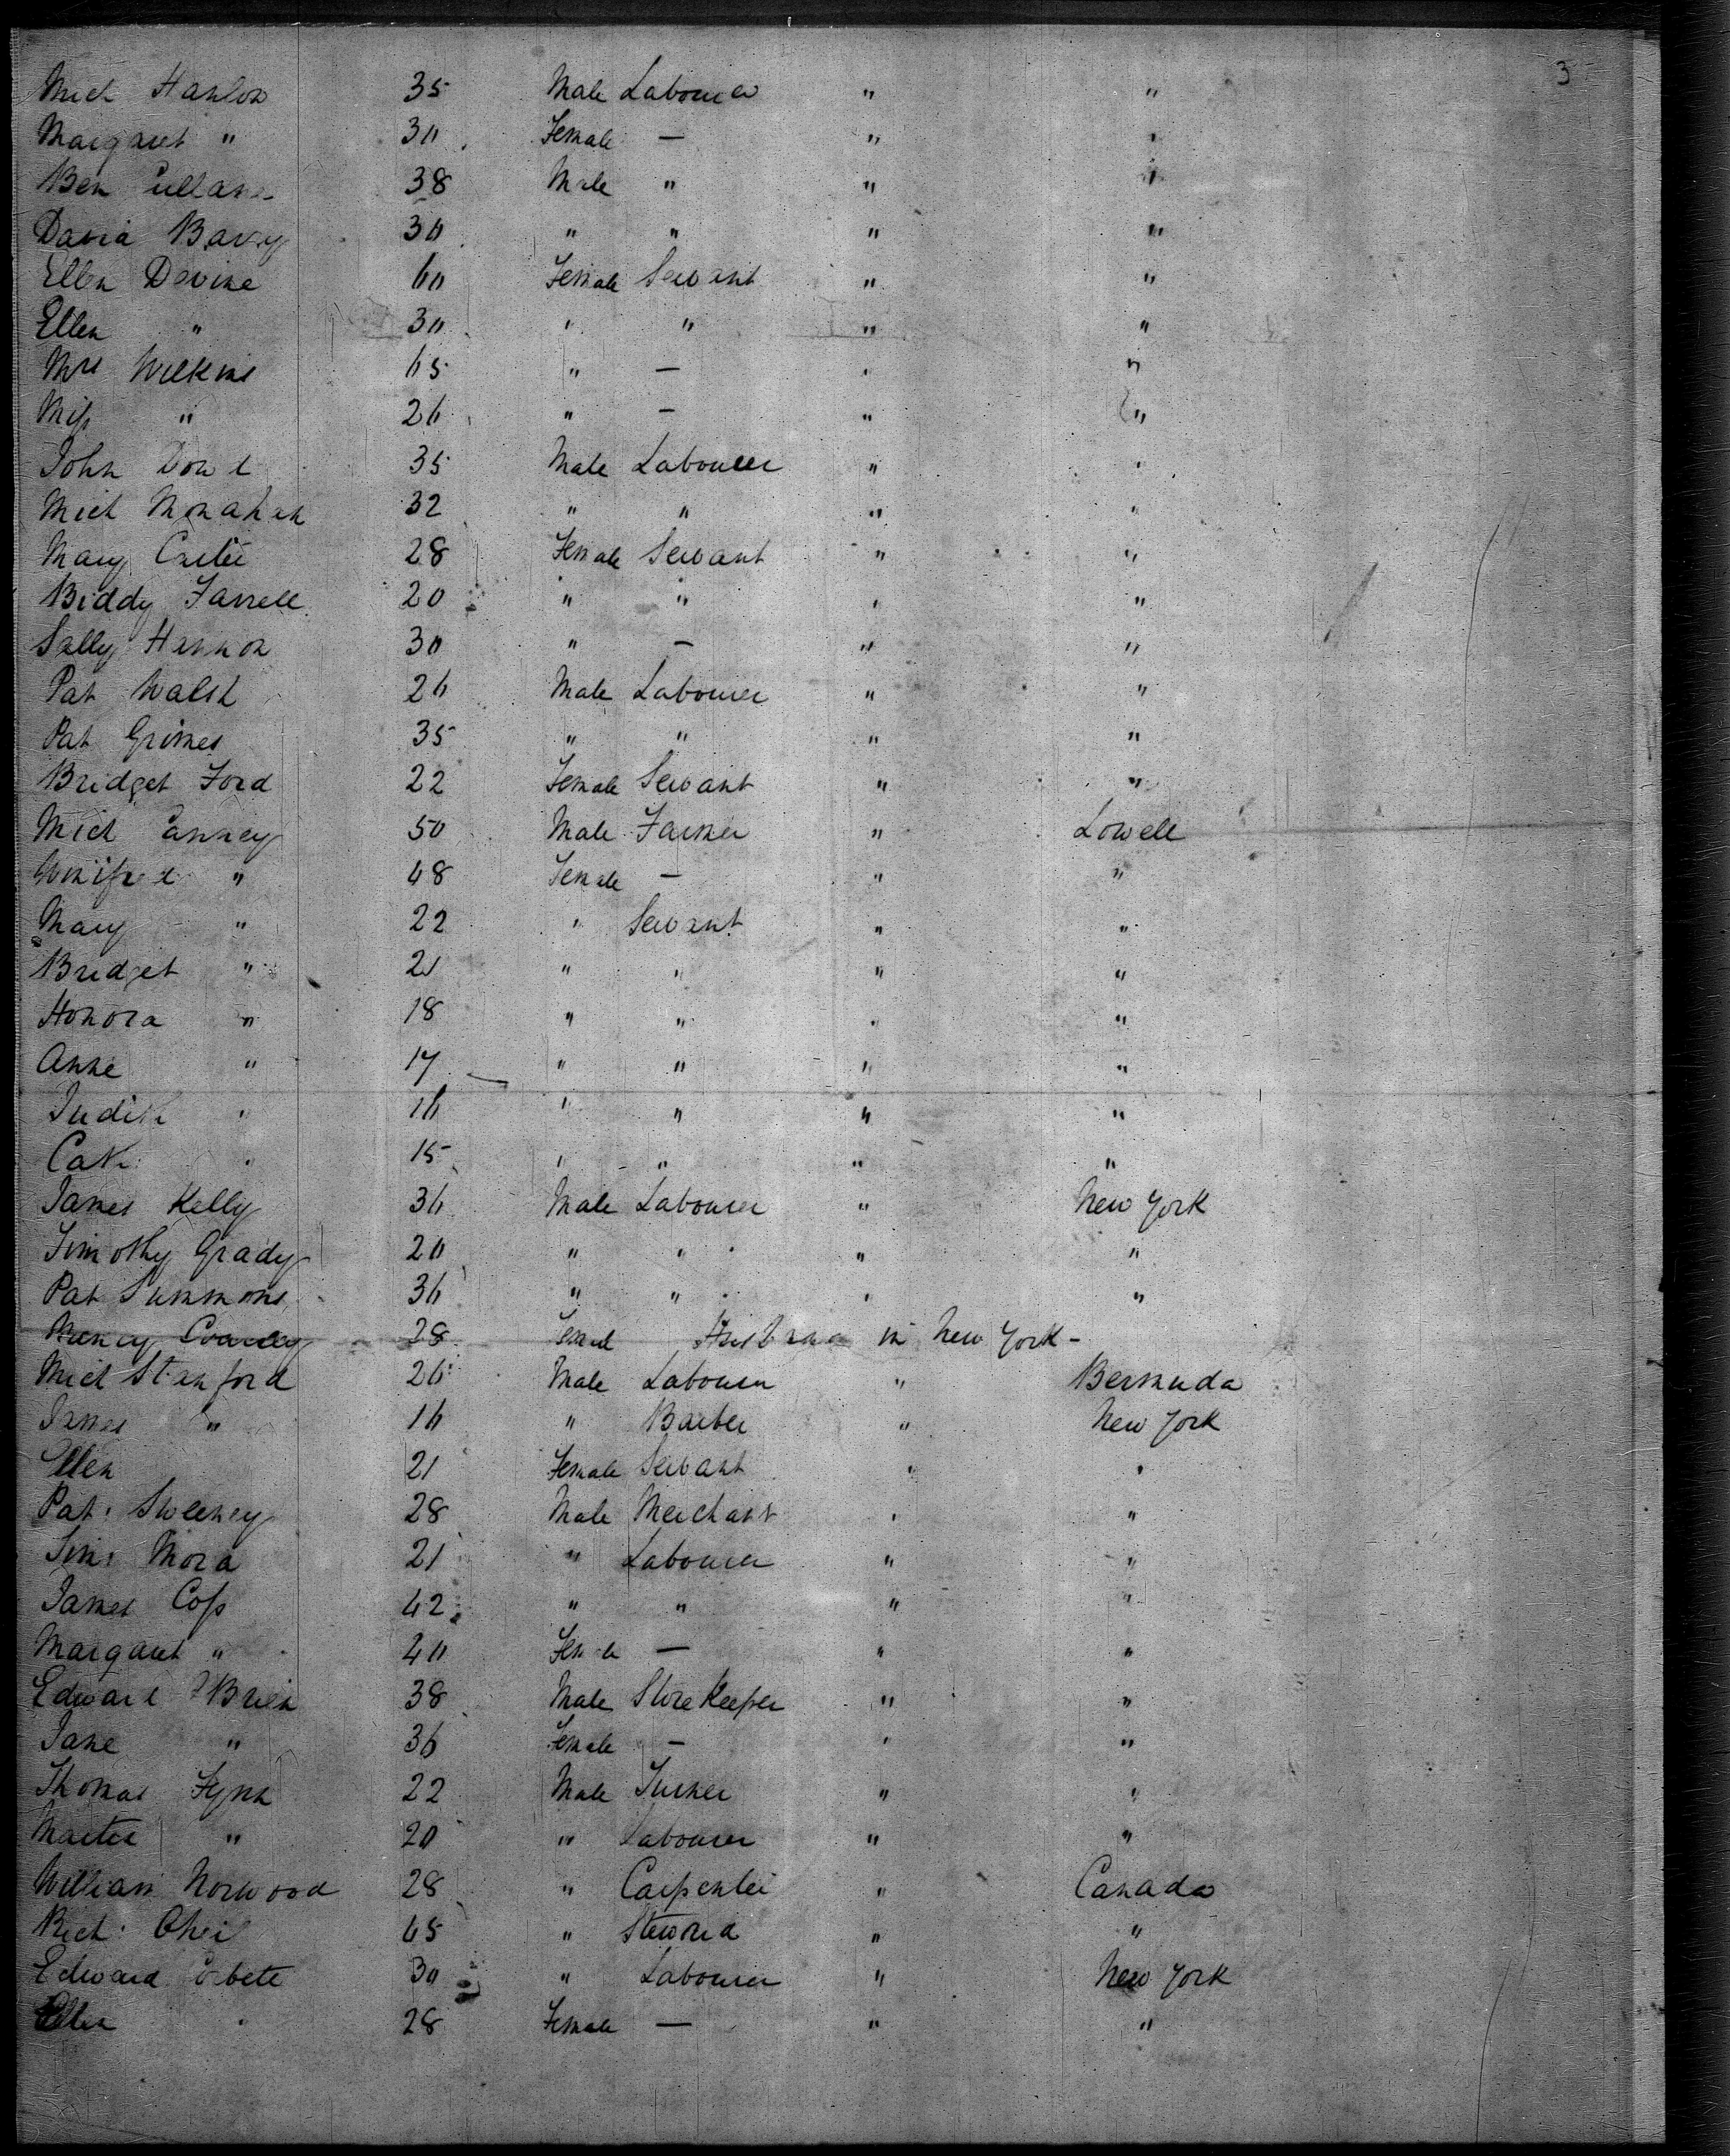 3
Mich Hanlon 35 Male Labourer " "
Margaret " 30 Female — " "
Ben 38 Male " " "
David Barry 30 " " " "
Ellen Devine 60 Female Servant " "
Ellen " 30 " " " "
Mrs Wilkins 65 " — " "
Miss " 26 " — " "
John Dowd 35 Male Labourer " "
Mich Monahan 32 " " " "
Mary 28 Female Servant " "
Biddy Farrell 20 " " " "
Sally Hannon 30 " — " "
Pat Walsh 26 Male Labourer " "
Pat Grimes 35 " " " "
Bridget Ford 22 Female Servant " "
Mich Canney 50 Male Farmer " Lowell
Winifred " 48 Female — " "
Mary " 22 " Servant " "
Bridget " 21 " " " "
Honora " 18 " " " "
Anne " 17 " " " "
Judith " 16 " " " "
Cath " 15 " " " "
James Kelly 36 Male Labourer " New York
Timothy Grady 20 " " " "
Pat Summons 36 " " " "
28 Femal Husband in New York -
Mich Stanford 26 Male Labourer " Bermuda
James " 16 " Barber " New York
Ellen 21 Female Servant " "
Pat. Sweeney 28 Male Merchant " "
Tim: Mora 21 " Labourer " "
James Coss 42 " " " "
Margaret " 40 Female — " "
Edward OBrien 38 Male Store Keeper " "
Jane " 36 Female — " "
Thomas Fynn 22 Male Turner " "
Martin " 20 " Labourer " "
William Norwood 28 " Carpenter " Canada
Rich. 65 " Steward " "
Edward 30 " Labourer " New York
Ellen " 28 Female — " "